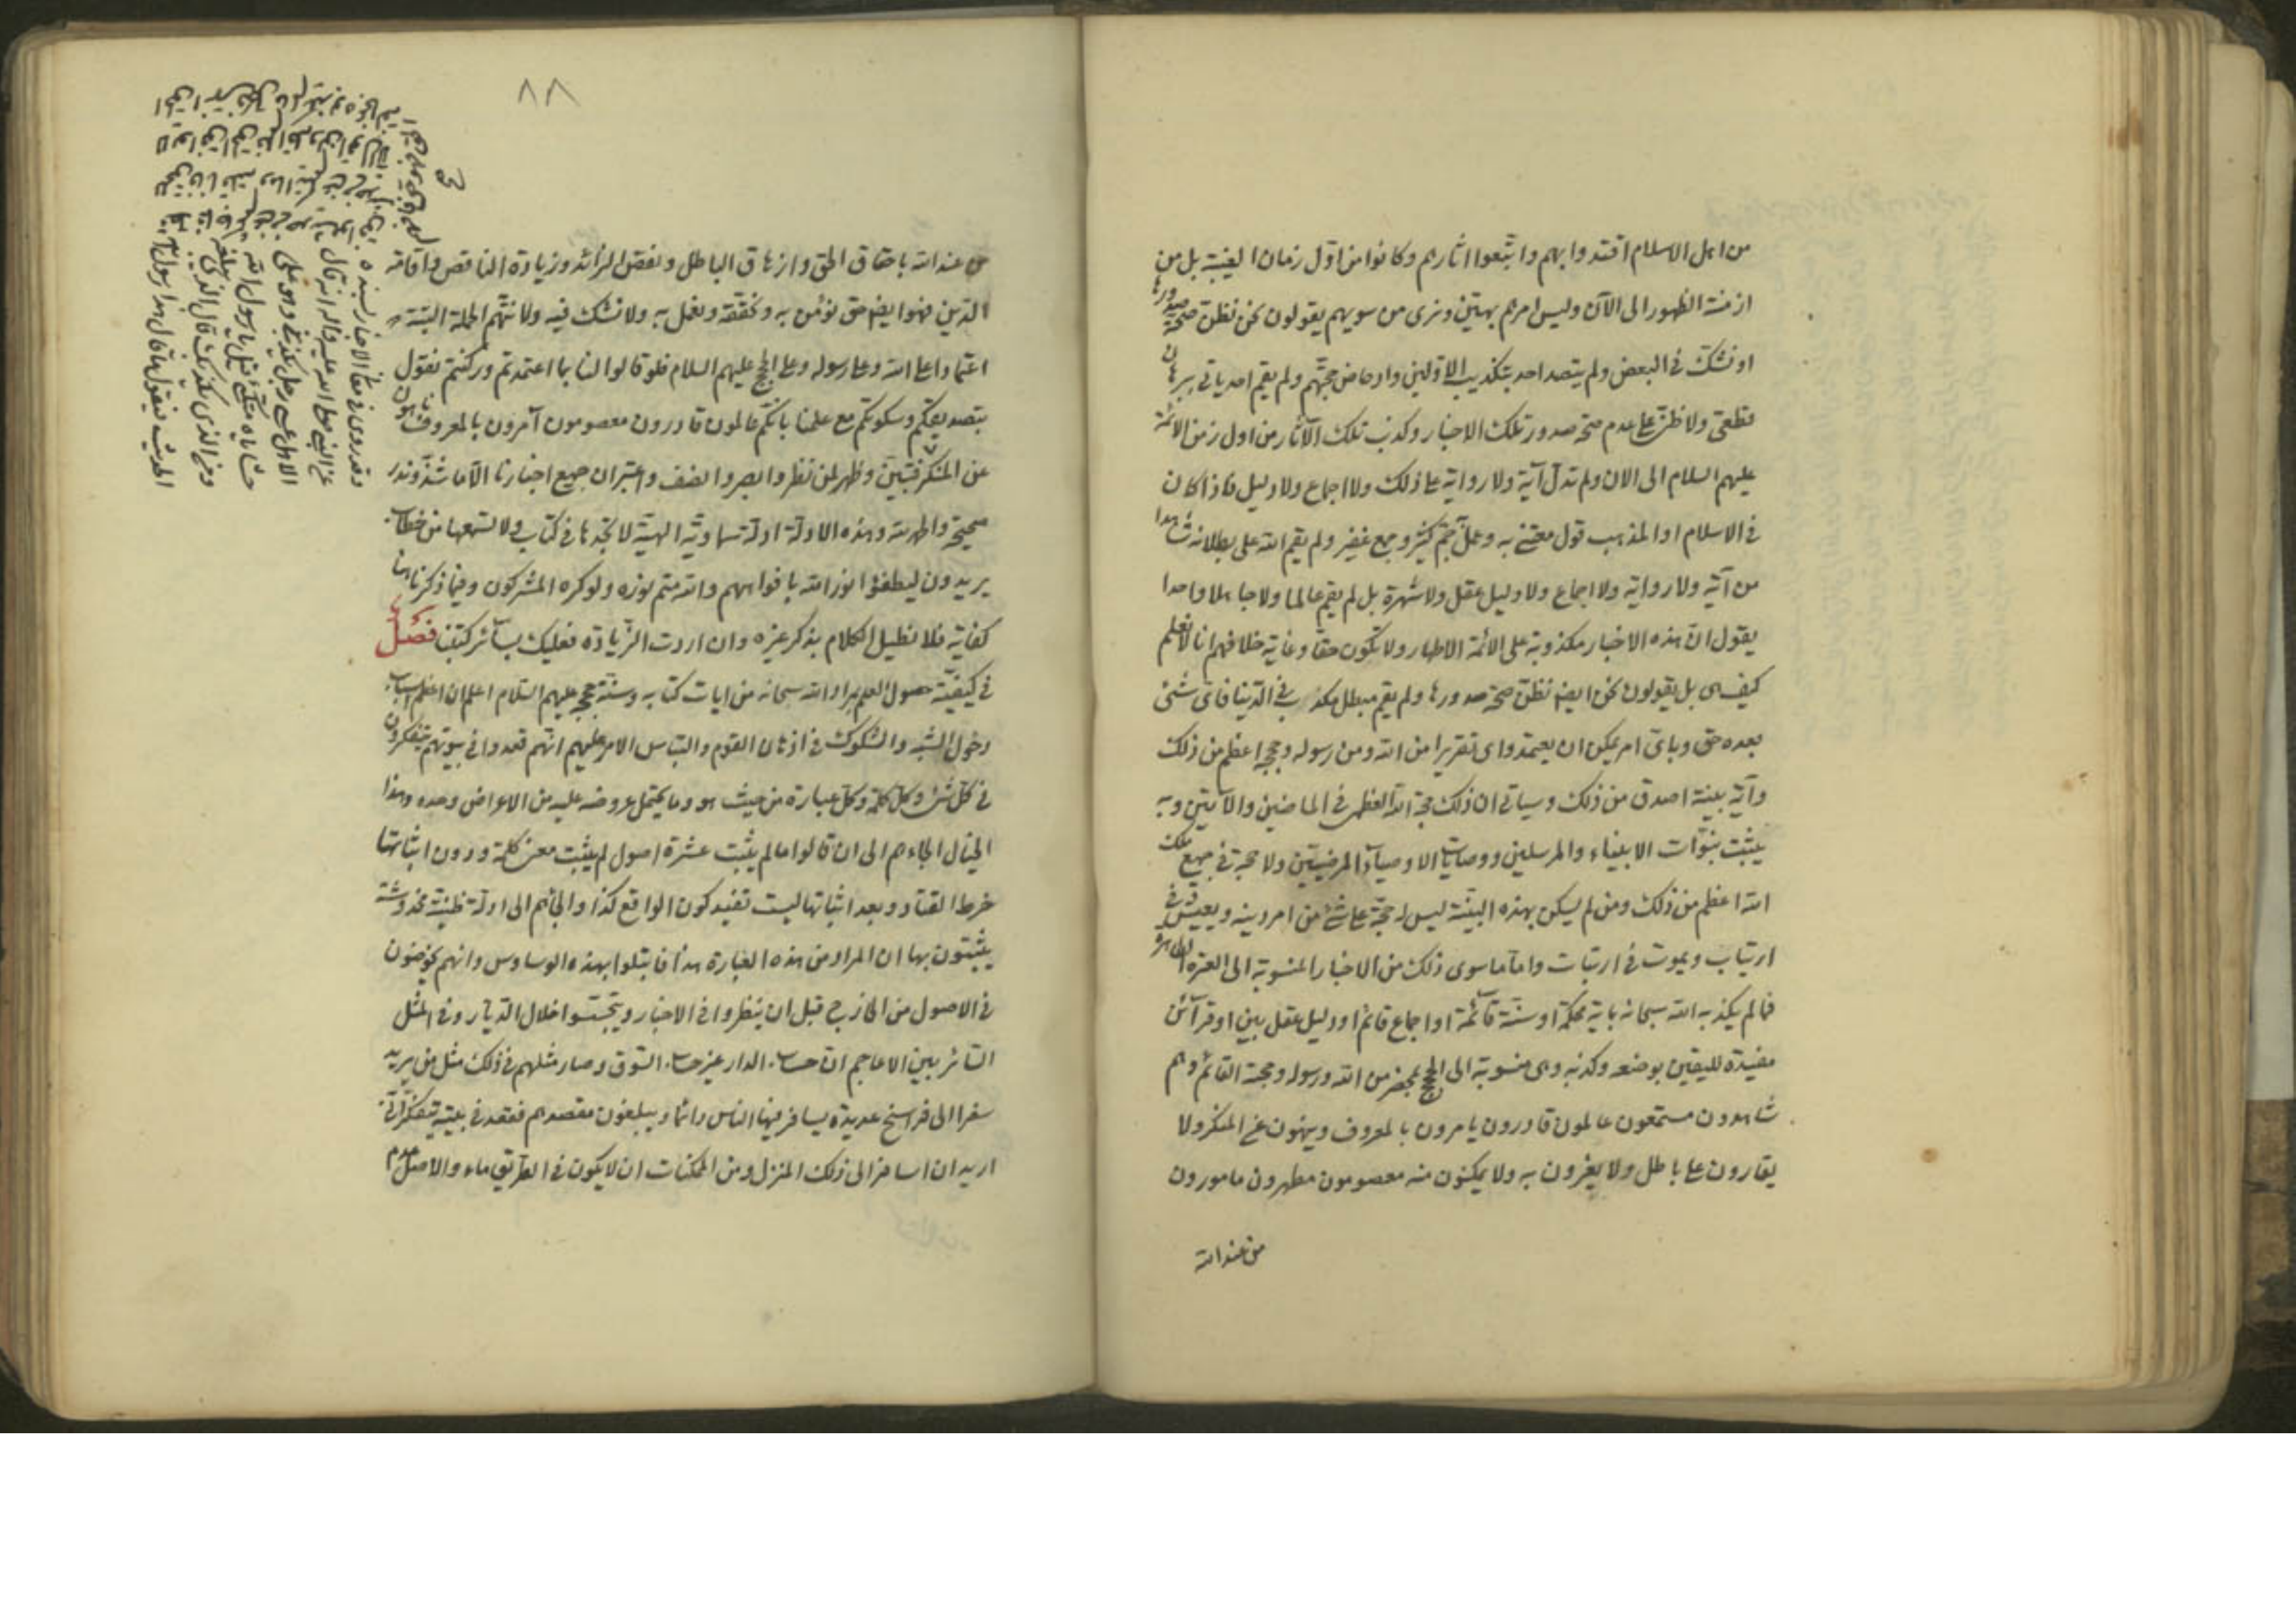 من اهل الاسلام اقتدوا بهم واتبعوا اثارهم وكانوا من اول زمان الغيبة بل من
ازمنة الظهور الى الآن وليس امرهم بهين ونرى من سويهم يقولون نحن نظن صحة صدورها
او نشك في البعض ولم يتصد احد بتكذيب الاولين وادحاض حجتهم ولم يقم احد ياتي ببرهان
قطعي ولا ظني على عدم صحة صدور تلك الاخبار وكذب تلك الآثار من اول زمن الائمة
عليهم السلام الى الان ولم تدل آية ولا رواية على ذلك ولا اجماع ولا دليل فاذا كان
في الاسلام او المذهب قول معتنى به وعمل جم كثير وجمع غفير ولم يقم الله على بطلانه شاهدا
من آية ولا رواية ولا اجماع ولا دليل عقل ولا شهرة بل لم يقم عالما ولا جاهلا واحدا
يقول ان هذه الاخبار مكذوبة على الائمة الاطهار ولا تكون حقا وغاية خلافهم انا لا نعلم
كيف هي بل يقولون نحن ايضا نظن صحة صدورها ولم يقم مبطل مكذب في الدنيا فاي شئ
بعده حق وباي امر يمكن ان يعتمدوا اي تقرير من الله ومن رسوله وحججه اعظم من ذلك
وآية بينة اصدق من ذلك وسياتي ان ذلك حجة الله العظمى في الماضين والآتين وبه
يثبت نبوات الانبياء والمرسلين ووصايات الاوصياء المرضيين ولا حجة في جميع ملك
الله اعظم من ذلك ومن لم يسكن بهذه البينة ليس له حجة على شئ من امر دينه ويعيش في
ارتياب ويموت في ارتياب واما ما سوى ذلك من الاخبار المنسوبة الى العترة الطاهرة
فما لم يكذبه الله سبحانه باية محكمة او سنة قائمة او اجماع قائم او دليل عقل بين او قرآئن
مفيدة لليقين بوضعه وكذبه وهي منسوبة الى الحجج بمحضر من الله ورسوله وحجته القائم وهم
شاهدون مستمعون عالمون قادرون يامرون بالمعروف وينهون عن المنكر ولا
يقارون على باطل ولا يغرون به ولا يمكنون منه معصومون مطهرون مامورون
من عند الله
٨٨
من عند الله باحقاق الحق وازهاق الباطل ونقص الزائد وزيادة الناقص واقامة
الدين فهو ايضا حق نؤمن به ونحققه ونعمل به ولا نشك فيه ولا نتهم الجملة البتة
اعتمادا على الله وعلى رسوله وعلى الحجج عليهم السلام فلو قالوا لنا بما اعتمدتم وركنتم نقول
بتصديقكم وسكوتكم مع علمنا بانكم عالمون قادرون معصومون آمرون بالمعروف ناهون
عن المنكر فتبين وظهر لمن نظر وابصر وانصف واعتبر ان جميع اخبارنا الا ما شذ وندر
صحيحة والحمد لله وهذه الادلة ادلة سماوية الهية لا تجدها في كتاب ولا تسمعها من خطاب
يريدون ليطفؤا نور الله بافواههم والله متم نوره ولو كره المشركون وفيما ذكرنا هنا
كفاية فلا نطيل الكلام بذكر غيره وان اردت الزيادة فعليك بسآئر كتبنا فصل
في كيفية حصول العلم بمراد الله سبحانه من ايات كتابه وسنة حججه عليهم السلام اعلم ان اعظم اسباب
دخول الشبه والشكوك في اذهان القوم والتباس الامر عليهم انهم قعدوا في بيوتهم يتفكرون
في كل شئ وكل كلمة وكل عبارة من حيث هو وما يحتمل عروضه عليه من الاعراض وحده وهذا
الخيال الجاءهم الى ان قالوا ما لم يثبت عشرة اصول لم يثبت معنى كلمة ودون اثباتها
خرط القتاد وبعد اثباتها ليست تفيد كون الواقع كذا والجأهم الى ادلة ظنية مخدوشة
يثبتون بها ان المراد من هذه العبارة هذا فابتلوا بهذه الوساوس وانهم يخوضون
في الاصول من الخارج قبل ان ينظروا في الاخبار ويتجسسوا خلال الديار وفي المثل
السائر بين الاعاجم ان حساب الدار غير حساب السوق وصار مثلهم في ذلك مثل من يريد
سفرا الى فراسخ عديدة يسافر فيها الناس دائما ويبلغون مقصدهم فقعد في بيته يتفكر انى
اريد ان اسافر الى ذلك المنزل ومن الممكنات ان لا يكون في الطريق ماء والاصل عدم
وقد روى في معاني الاخبار بسنده
عن النبي صلى الله عليه واله انه قال
الا هل عسى رجل يكذبني وهو على
حشاياه متكئ قيل يا رسول الله
ومن الذي يكذبك قال الذي يبلغه
الحديث فيقول ما قال هذا رسول الله